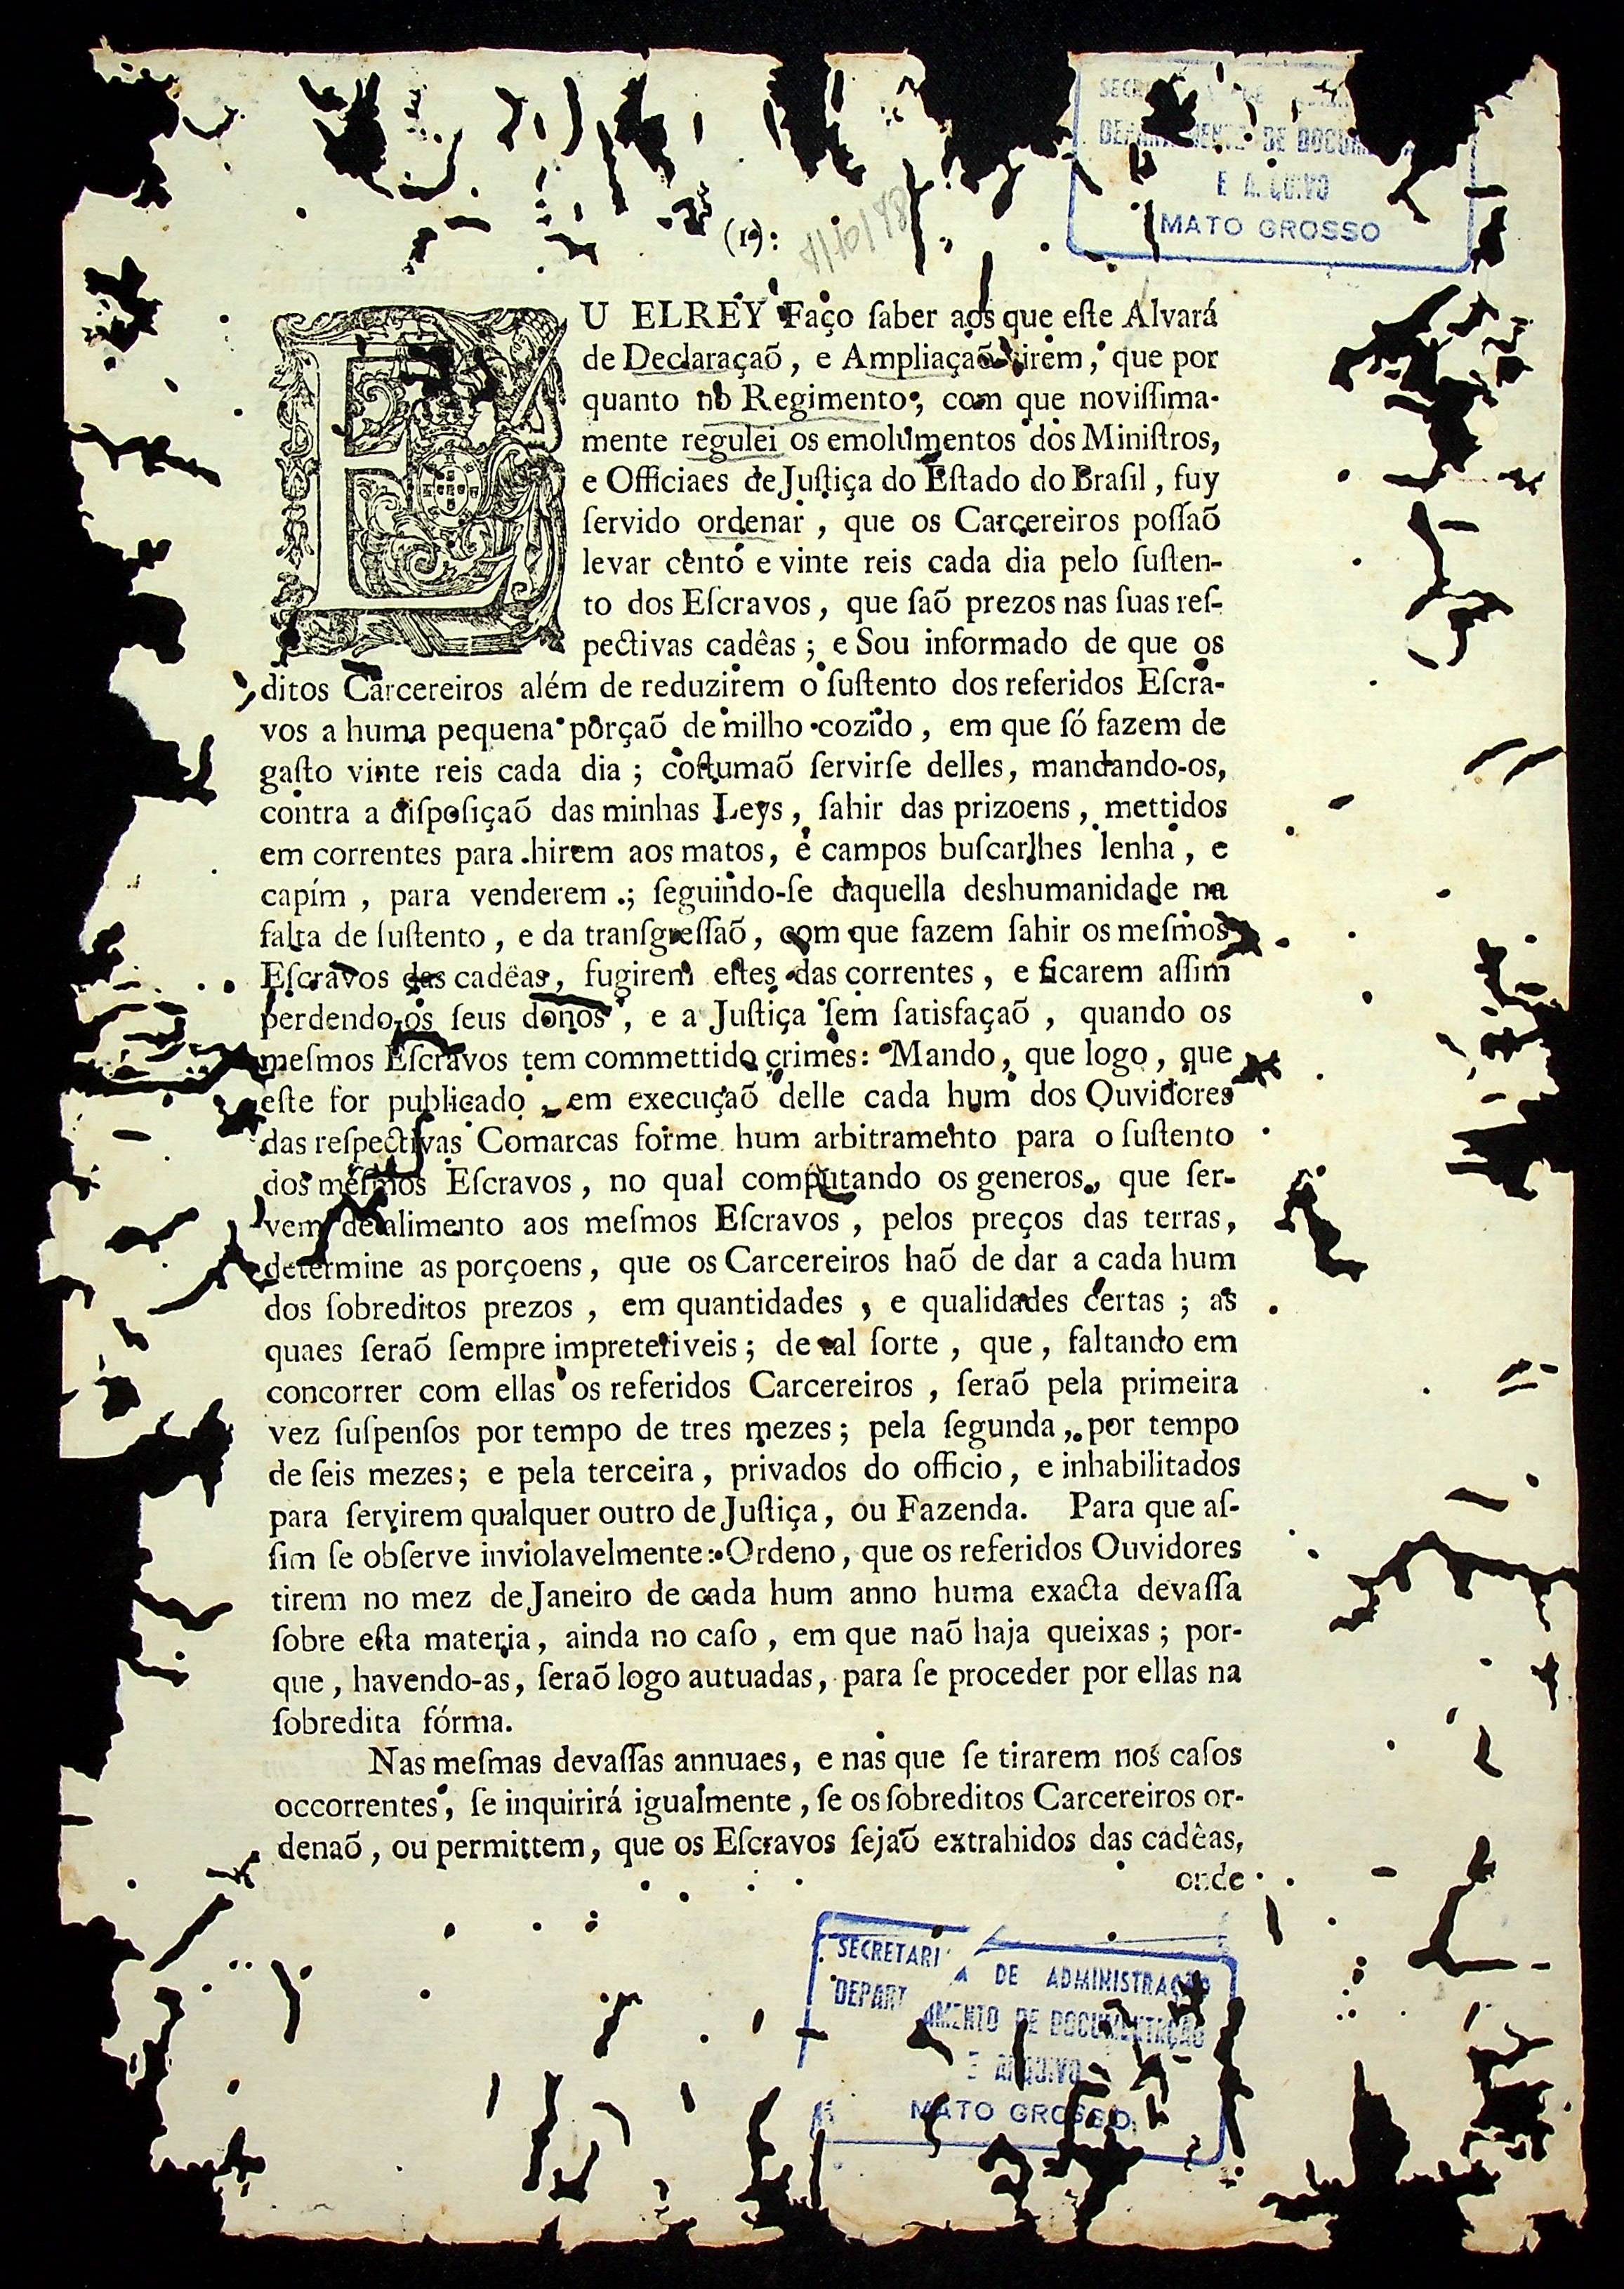 SECR
DE DOCUM
E ARQUIVO
MATO GROSSO
(1):
EU ELREY Faço ſaber aos que eſte Alvará
de Declaraçaõ, e Ampliaçaõ virem, que por
quanto no Regimento, com que noviſſima-
mente regulei os emolumentos dos Miniſtros,
e Officiaes de Juſtiça do Eſtado do Braſil, fuy
ſervido ordenar, que os Carcereiros poſſaõ
levar cento e vinte reis cada dia pelo ſuſten-
to dos Eſcravos, que ſaõ prezos nas ſuas reſ-
pectivas cadêas; e Sou informado de que os
ditos Carcereiros além de reduzirem o ſuſtento dos referidos Eſcra-
vos a huma pequena porçaõ de milho cozido, em que ſó fazem de
gaſto vinte reis cada dia; coſtumaõ ſervirſe delles, mandando-os,
contra a diſpoſiçaõ das minhas Leys, ſahir das prizoens, mettidos
em correntes para hirem aos matos, e campos buſcarlhes lenha, e
capím, para venderem; ſeguindo-ſe daquella deshumanidade na
falta de ſuſtento, e da tranſgreſſaõ, com que fazem ſahir os meſmos
Eſcravos das cadêas, fugirem eſtes das correntes, e ficarem aſſim
perdendo-os ſeus donos, e a Juſtiça ſem ſatisfaçaõ, quando os
meſmos Eſcravos tem commettido crimes: Mando, que logo, que
eſte for publicado, em execuçaõ delle cada hum dos Ouvidores
das reſpectivas Comarcas forme hum arbitramento para o ſuſtento
dos meſmos Eſcravos, no qual computando os generos, que ſer-
vem de alimento aos meſmos Eſcravos, pelos preços das terras,
determine as porçoens, que os Carcereiros haõ de dar a cada hum
dos ſobreditos prezos, em quantidades, e qualidades certas; as
quaes ſeraõ ſempre impreteriveis; de tal ſorte, que, faltando em
concorrer com ellas os referidos Carcereiros, ſeraõ pela primeira
vez ſuſpenſos por tempo de tres mezes; pela ſegunda, por tempo
de ſeis mezes; e pela terceira, privados do officio, e inhabilitados
para ſervirem qualquer outro de Juſtiça, ou Fazenda. Para que aſ-
ſim ſe obſerve inviolavelmente: Ordeno, que os referidos Ouvidores
tirem no mez de Janeiro de cada hum anno huma exacta devaſſa
ſobre eſta materia, ainda no caſo, em que naõ haja queixas; por-
que, havendo-as, ſeraõ logo autuadas, para ſe proceder por ellas na
ſobredita fórma.
Nas meſmas devaſſas annuaes, e nas que ſe tirarem nos caſos
occorrentes, ſe inquirirá igualmente, ſe os ſobreditos Carcereiros or-
denaõ, ou permittem, que os Eſcravos ſejaõ extrahidos das cadêas,
onde
SECRETARIA DE ADMINISTRAÇÃO
DEPARTAMENTO DE DOCUMENTAÇÃO
E ARQUIVO
MATO GROSSO